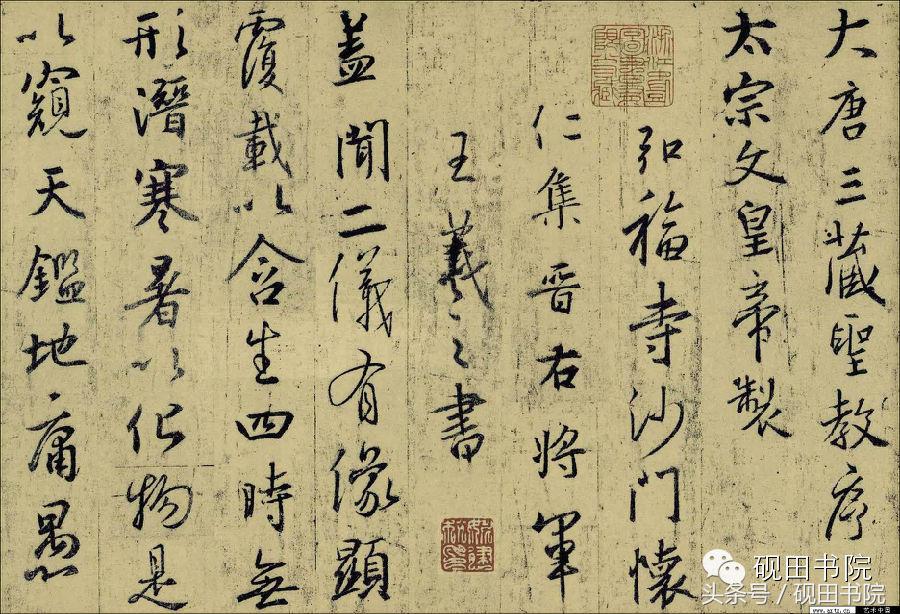 大唐三藏聖教序
太宗文皇帝製
弘福寺沙門懷
仁集晉右將軍
王羲之書
蓋聞二儀有像顯
覆載以含生四時無
形潛寒暑以化物是
以窺天鑑地庸愚
砚田书院
头条号／砚田书院
www.artx.cn 艺术中国